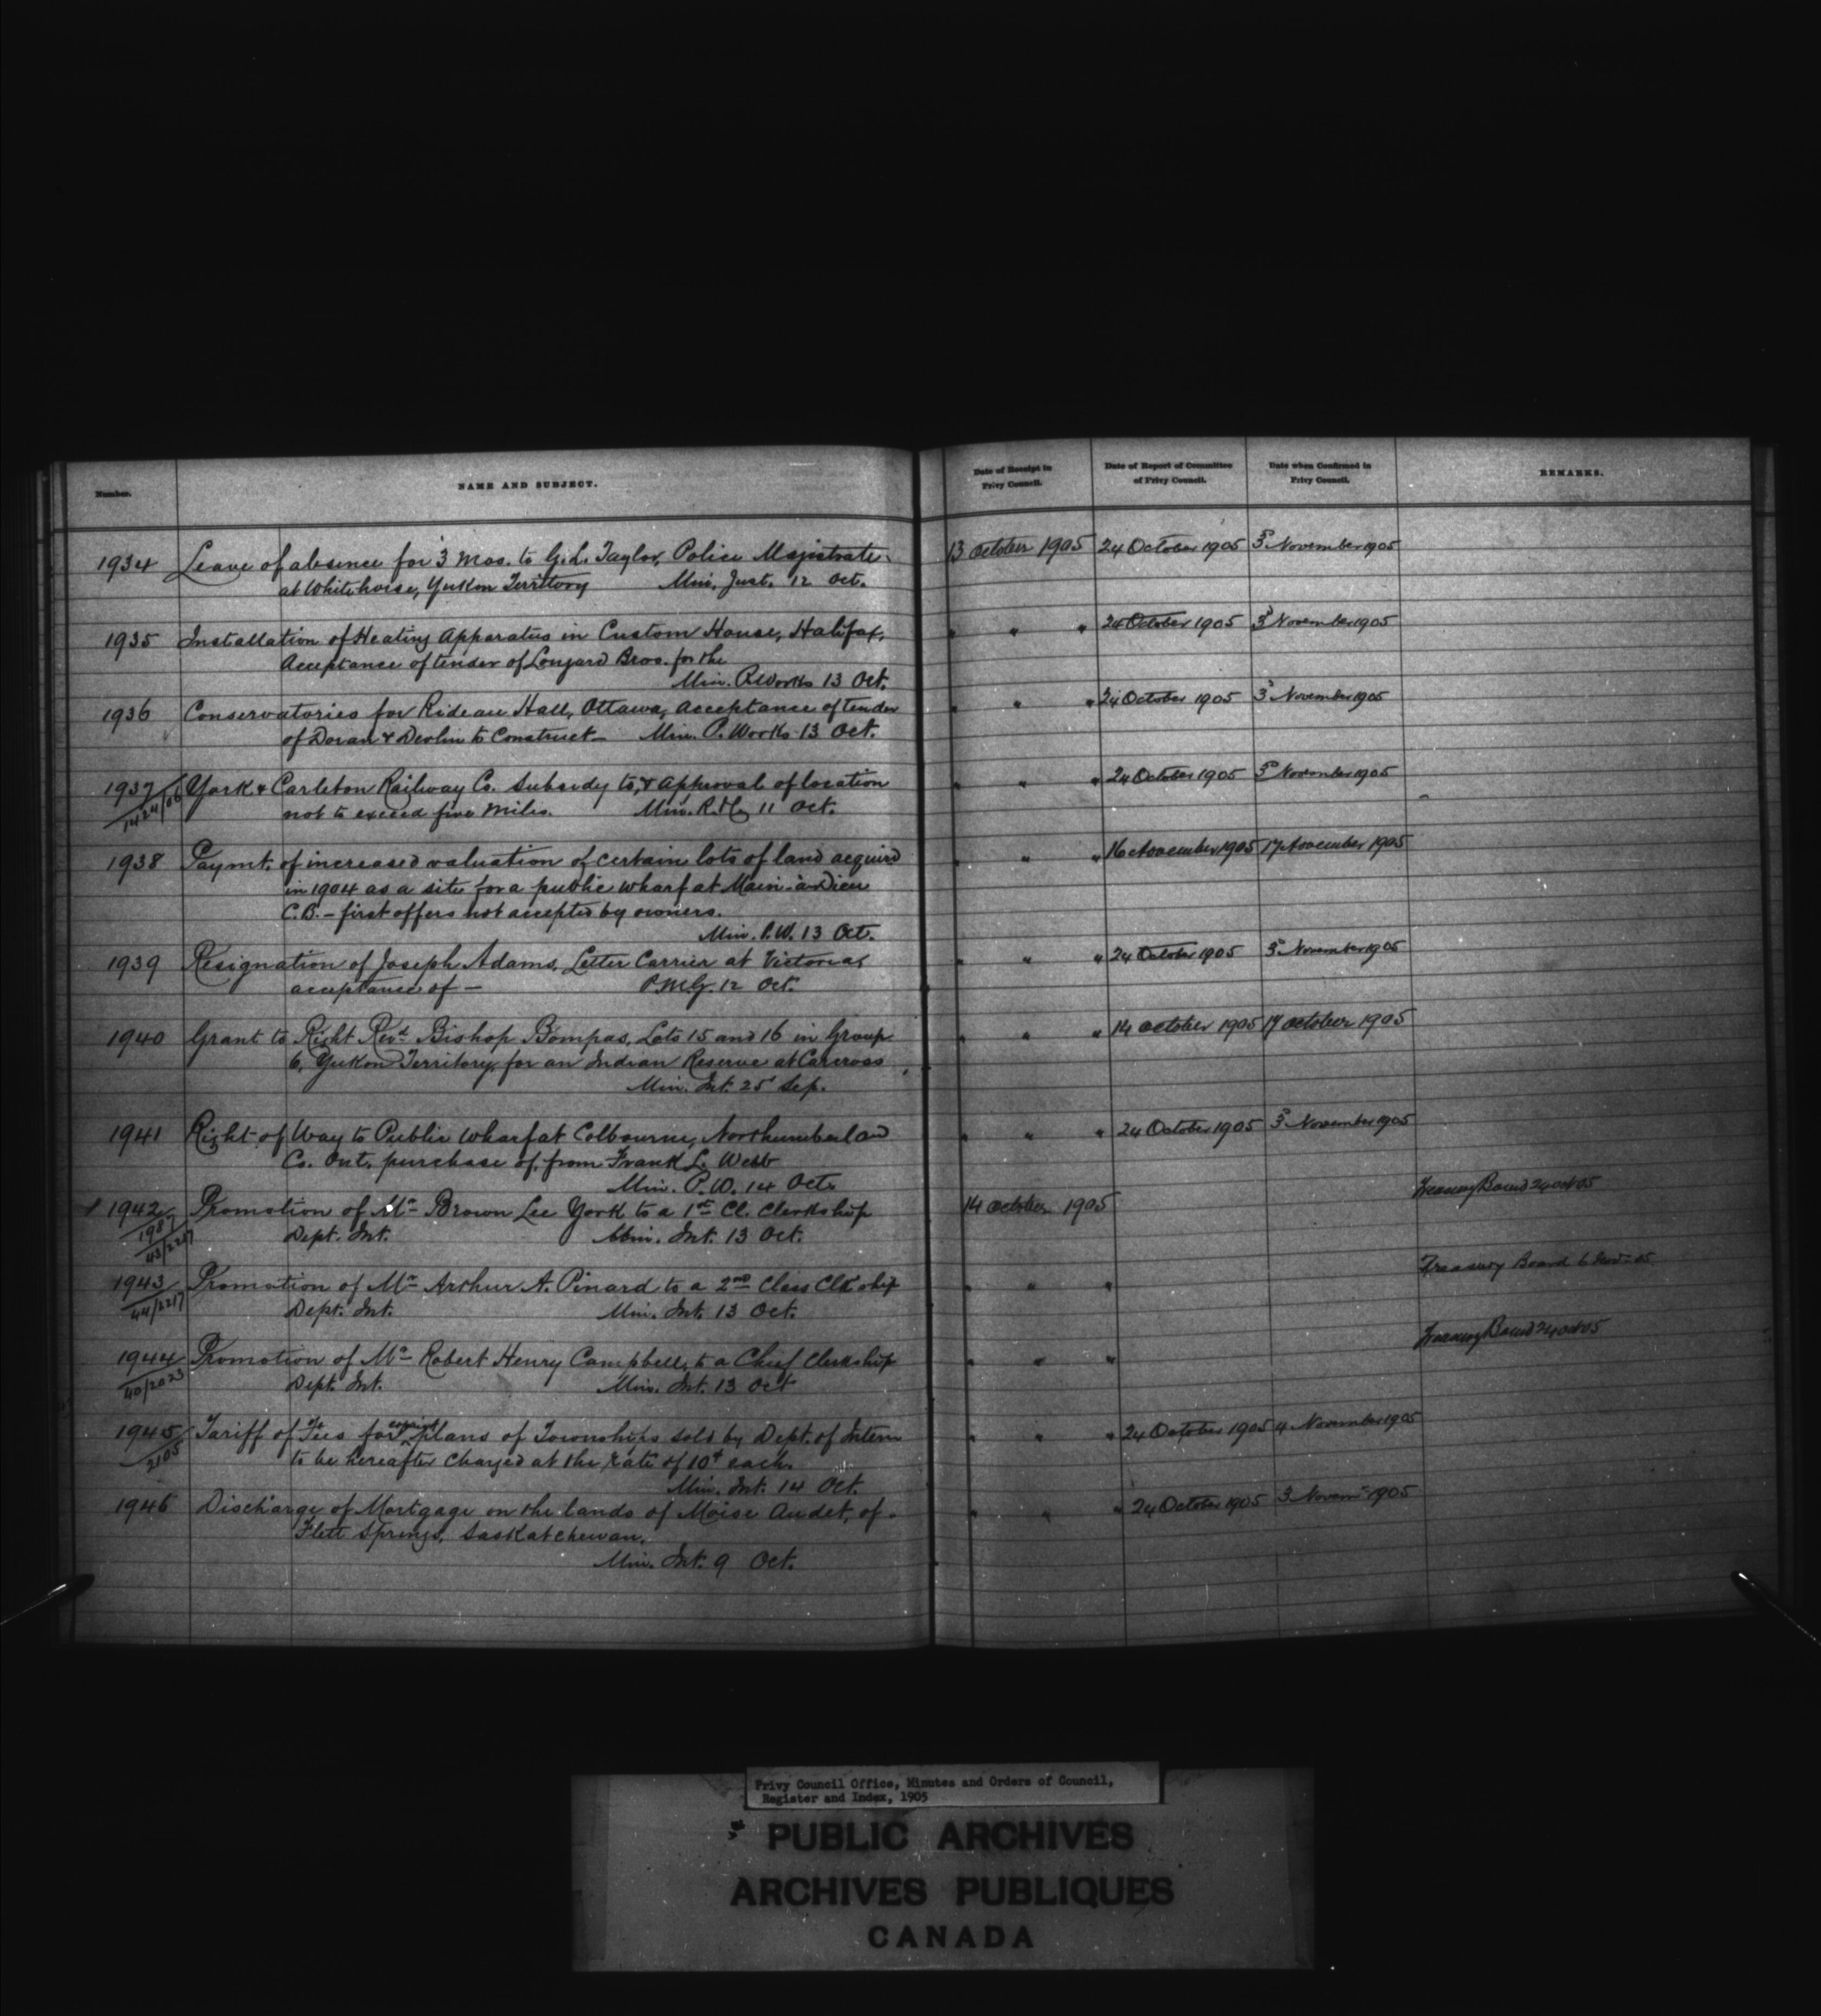 Number.
NAME AND SUBJECT.
Date of Receipt in Privy Council.
Date of Report of Committee of Privy Council.
Date when Confirmed in Privy Council.
REMARKS.
1934 Leave of absence for 3 mos. to G.L. Taylor, Police Magistrate 13 October 1905 24 October 1905 3d November 1905
at Whitehorse, Yukon Territory Min. Just. 12 Oct.
1935 Installation of Heating Apparatus in Custom House, Halifax, " " " 24 October 1905 3d November 1905
Acceptance of tender of Longard Bros. for the
Min. P. Works 13 Oct.
1936 Conservatories for Rideau Hall, Ottawa, acceptance of tender " " " 24 October 1905 3d November 1905
of Doran & Devlin to Construct — Min. P. Works 13 Oct.
1937 York & Carleton Railway Co. Subsidy to, & approval of location " " " 24 October 1905 3d November 1905
1424/06 not to exceed five miles. Min. R. & C. 11 Oct.
1938 Paymt. of increased valuation of certain lots of land acquired " " " 16 November 1905 17 November 1905
in 1904 as a site for a public wharf at Main-à-Dieu
C.B. – first offers not accepted by owners.
Min. P.W. 13 Oct.
1939 Resignation of Joseph Adams, Letter Carrier at Victoria, " " " 24 October 1905 3d November 1905
acceptance of — P.M.G. 12 Oct.
1940 Grant to Right Revd. Bishop Bompas, Lots 15 and 16 in Group " " " 14 October 1905 17 October 1905
6, Yukon Territory, for an Indian Reserve at Carcross
Min. Int. 25 Sep.
1941 Right of Way to Public Wharf at Colbourne, Northumberland " " " 24 October 1905 3d November 1905
Co. Ont. purchase of, from Frank L. Webb
Min. P.W. 14 Oct.
1942 Promotion of Mr. Brown Lee York to a 1st Cl. Clerkship 14 October 1905 Treasury Board 24 Oct 05
1987 Dept. Int. Min. Int. 13 Oct.
43/2217
1943 Promotion of Mr. Arthur A. Pinard to a 2nd Class Clkship " " " Treasury Board 6 Nov. 05
44/2217 Dept. Int. Min. Int. 13 Oct.
1944 Promotion of Mr. Robert Henry Campbell, to a Chief Clerkship " " " Treasury Board 24 Oct 05
40/2023 Dept. Int. Min. Int. 13 Oct
1945 Tariff of Fees for plans of Townships sold by Dept. of Interr " " " 24 October 1905 4 November 1905
2105 to be hereafter charged at the rate of 10¢ each.
Min. Int. 14 Oct.
1946 Discharge of Mortgage on the lands of Moise Audet, of " " " 24 October 1905 3 Novemr 1905
Flett Springs, Saskatchewan.
Min. Int. 9 Oct.
Privy Council Office, Minutes and Orders of Council,
Register and Index, 1905
PUBLIC ARCHIVES
ARCHIVES PUBLIQUES
CANADA